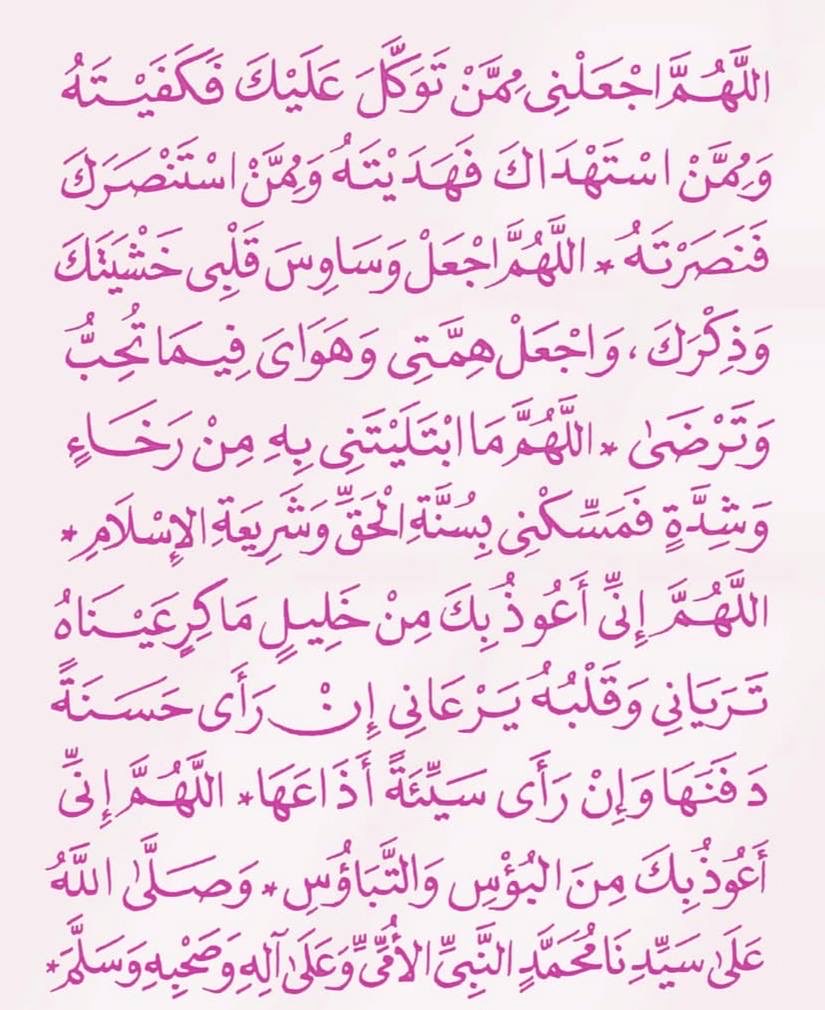 اللَّهُمَّ اجْعَلْنِى مِمَّنْ تَوَكَّلَ عَلَيْكَ فَكَفَيْتَهُ
وَمِمَّنْ اسْتَهْدَاكَ فَهَدَيْتَهُ وَمِمَّنْ اسْتَنْصَرَكَ
فَنَصَرْتَهُ * اللَّهُمَّ اجْعَلْ وَسَاوِسَ قَلْبِى خَشْيَتَكَ
وَذِكْرَكَ ، وَاجْعَلْ هِمَّتِى وَهَوَاىَ فِيمَا تُحِبُّ
وَتَرْضَىٰ * اللَّهُمَّ مَا ابْتَلَيْتَنِى بِهِ مِنْ رَخَاءٍ
وَشِدَّةٍ فَمَسِّكْنِى بِسُنَّةِ الْحَقِّ وَشَرِيعَةِ الإِسْلَامِ *
اللَّهُمَّ إِنِّى أَعُوذُ بِكَ مِنْ خَلِيلٍ مَاكِرٍ عَيْنَاهُ
تَرَيَانِى وَقَلْبُهُ يَرْعَانِى إِنْ رَأَى حَسَنَةً
دَفَنَهَا وَإِنْ رَأَى سَيِّئَةً أَذَاعَهَا * اللَّهُمَّ إِنِّى
أَعُوذُ بِكَ مِنَ البُؤْسِ وَالتَّبَاؤُسِ * وَصَلَّىٰ اللَّهُ
عَلَىٰ سَيِّدِنَا مُحَمَّدٍ النَّبِىِّ الأُمِّىِّ وَعَلَىٰ آلِهِ وَصَحْبِهِ وَسَلَّمَ *